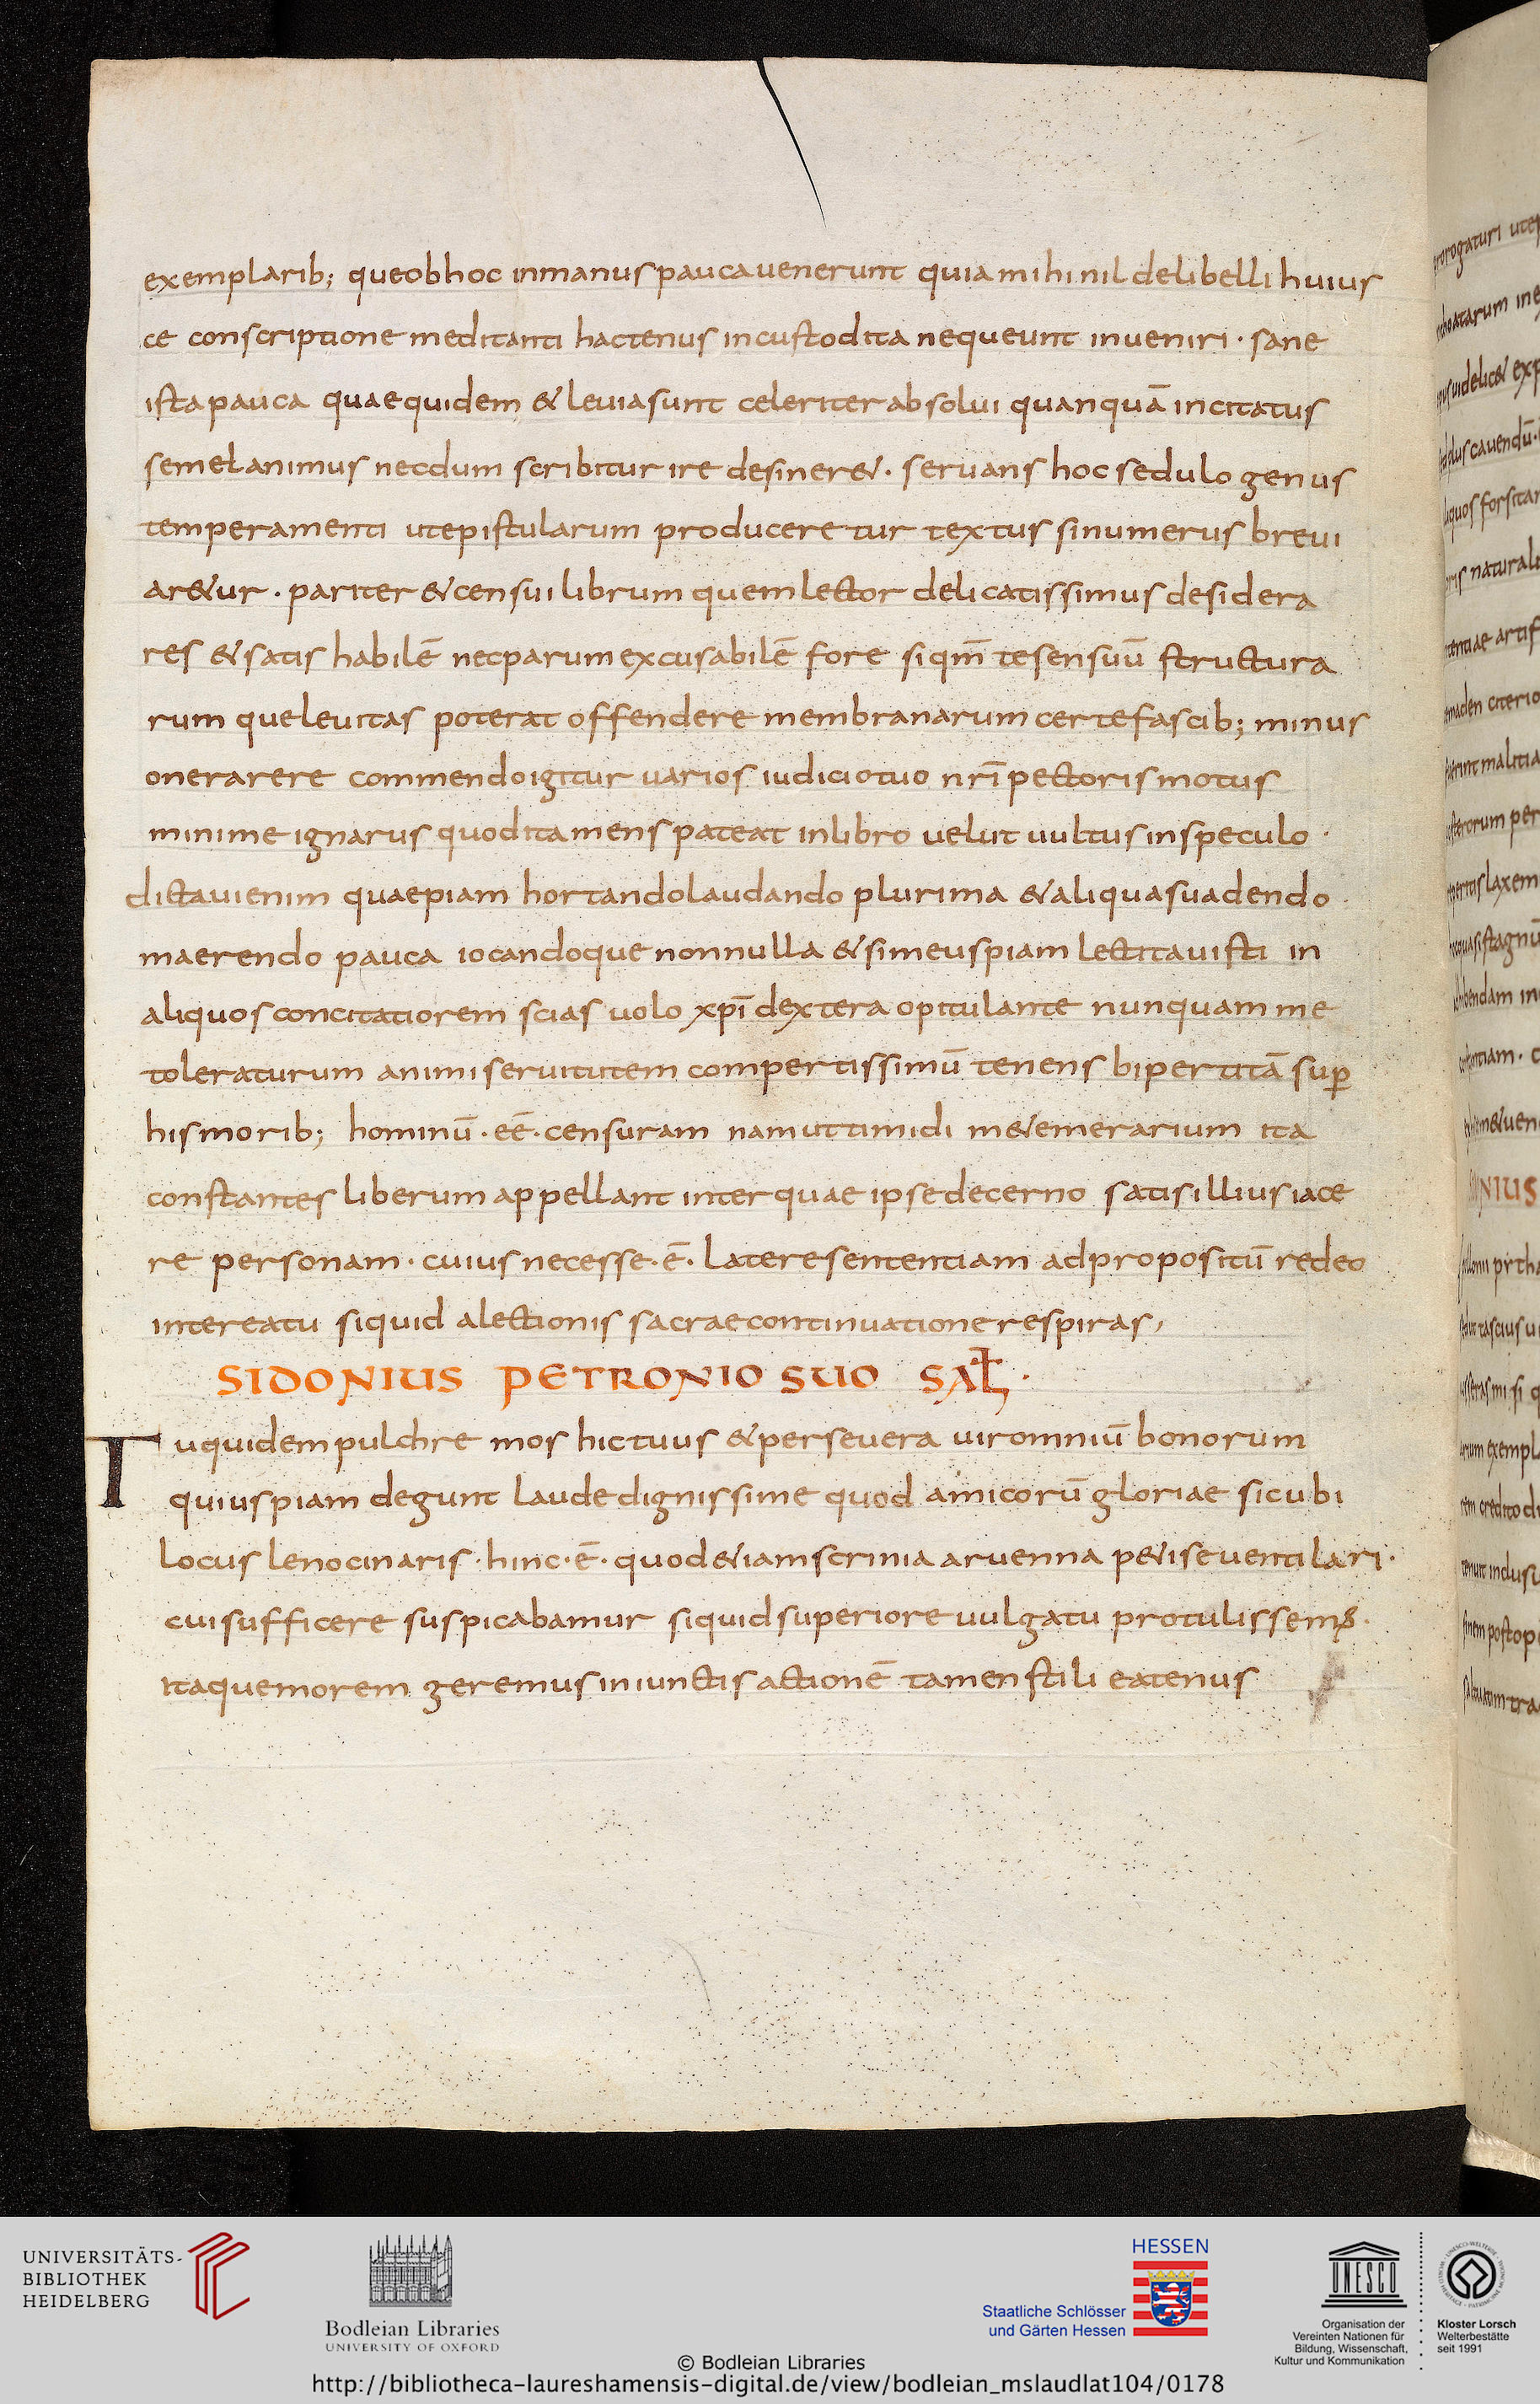 exemplarib; queobhoc inmanuspaucauenerunt quiamihinildelibellihuius
ce conscriptionemeditanti hactenus incustodita nequeunt inueniri · sane
istapauca quaequidem &leuiasunt celeriterabsolui quanquā incitatus
semelanimus necdum scribitur ire desiner&· seruans hoc sedulo genus
temperamenti utepistularum produceretur textus sinumerus breui
ar&ur · pariter &censui librum quemlector delicatissimus desidera
res &satis habilē necparumexcusabilē fore siqm̄ tesensuū structura
rum queleuitas poterat offendere membranarum certefascib; minus
onerarere commendoigitur uarios iudiciotuo nr̄i pectoris motus
minime ignarus quoditamens pateat inlibro uelut uultus inspeculo ·
dictauienim quaepiam hortandolaudando plurima &aliquasuadendo
maerendo pauca iocandoque nonnulla &simeuspiam lectitauisti in
aliquos concitatiorem scias uolo xp̄i dextera opitulante nunquam me
toleraturum animi seruitutem compertissimū tenens bipertitā sup̄
hismorib; hominū · eē · censuram namuttimidi m&emerarium ita
constantes liberum appellant interquae ipsedecerno satisilliusiace
re personam · cuius necesse · ē · lateresententiam adpropositū redeo
intereatu siquid alectionis sacraecontinuationerespiras,
SIDONIUS PETRONIO SUO SAL̵ ·
Tuquidempulchre mos hictuus &perseuera uiromniū bonorum
quiuspiam degunt laudedignissime quod amicorū gloriae sicubi
locus lenocinaris · hinc · ē · quod&iamscrinia aruenna p&iseuentilari ·
cuisufficere suspicabamur siquidsuperiore uulgatu protulissemꝰ ·
itaquemorem geremus iniunctis actionē tamen stili eatenus
UNIVERSITÄTS-
BIBLIOTHEK
HEIDELBERG
Bodleian Libraries
UNIVERSITY OF OXFORD
HESSEN
Staatliche Schlösser
und Gärten Hessen
UNESCO
Organisation der
Vereinten Nationen für
Bildung, Wissenschaft,
Kultur und Kommunikation
Kloster Lorsch
Welterbestätte
seit 1991
© Bodleian Libraries
http://bibliotheca-laureshamensis-digital.de/view/bodleian_mslaudlat104/0178